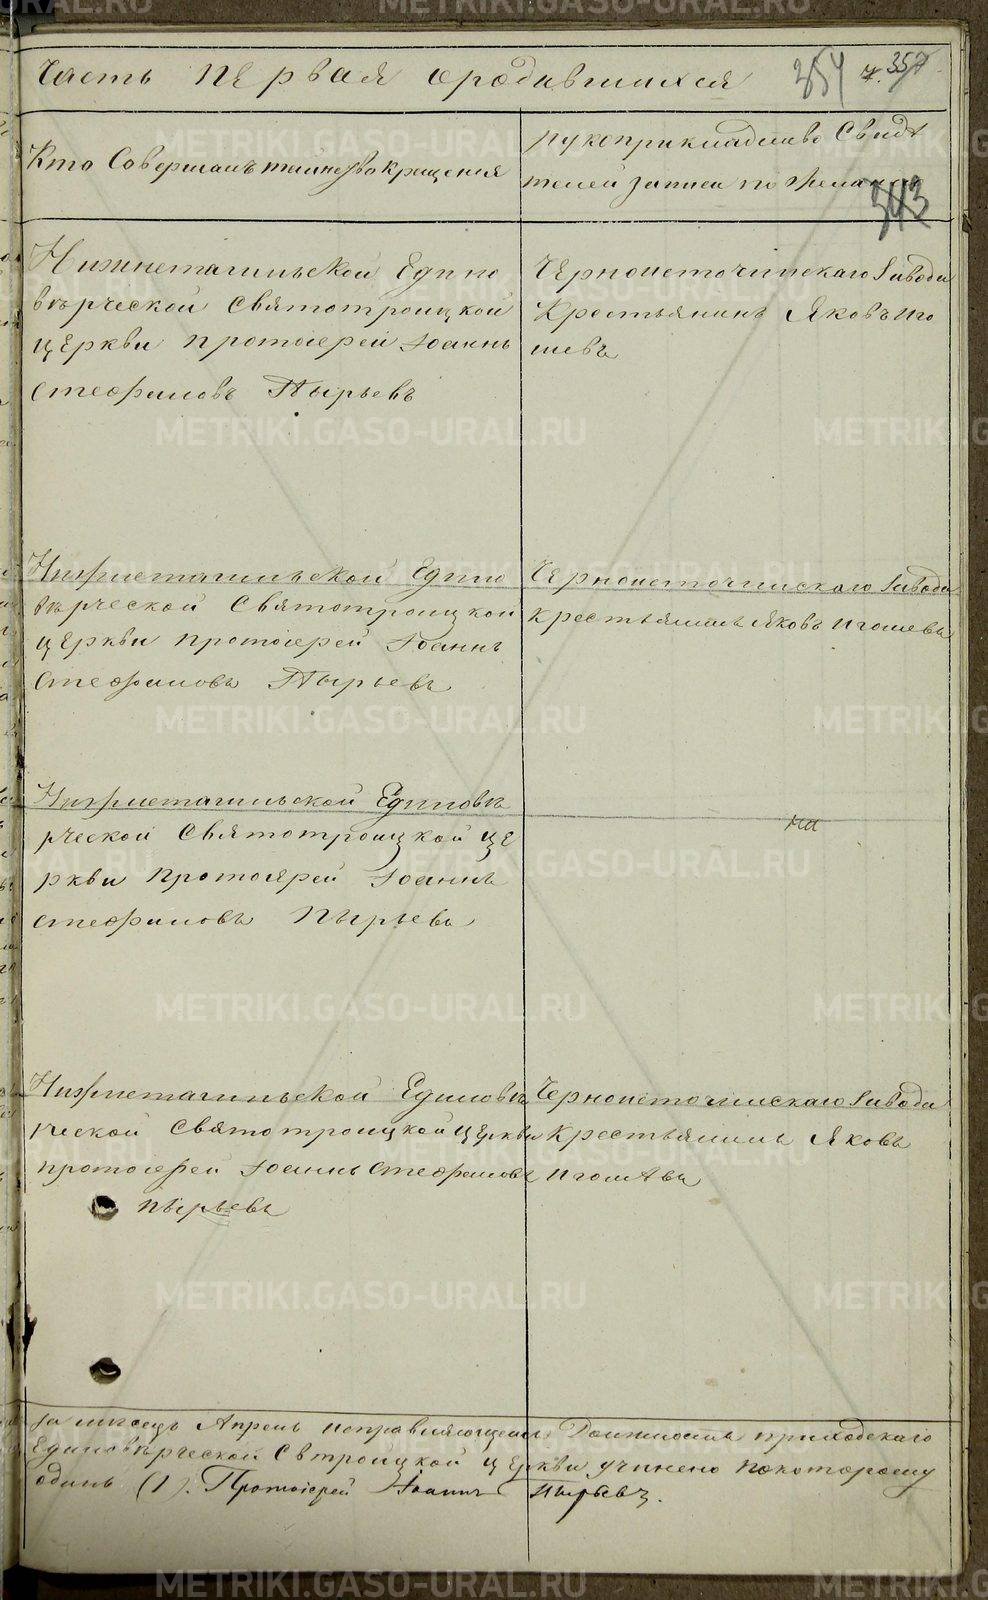 Часть первая о родившихся 354 ч. 357
Кто Совершалъ таинство крещения
рукоприкладство Свидѣ
телей записи по желанию
343
Нижнетагильской Едино
вѣрческой Святотроицкой
церкви протоіерей Іоаннъ
Стефановъ Пырьевъ
Черноисточинскаго Завода
Крестьянинъ Яковъ Иго
шевъ
Нижнетагильской Едино
вѣрческой Святотроицкой
церкви протоіерей Іоаннъ
Стефановъ Пырьевъ
Черноисточинскаго Завода
крестьянинъ Яковъ Игошевъ
Нижнетагильской Едиповѣ
рческой Святотроицкой це
ркви протоіерей Іоаннъ
Стефановъ Пырьевъ
Нижнетагильской Едиповѣ
рческой Святотроицкой церкви
протоіерей Іоаннъ Стефановъ
Пырьевъ
Черноисточинскаго Завода
крестьянинъ Яковъ
Игошевъ
За месяцъ Апрель исправляющемъ Должность приходскаго
Единовѣрческой Св троицкой церкви учинено по которому
одинъ (1). Протоіерей Іоаннъ Пырьевъ.
METRIKI.GASO-URAL.RU